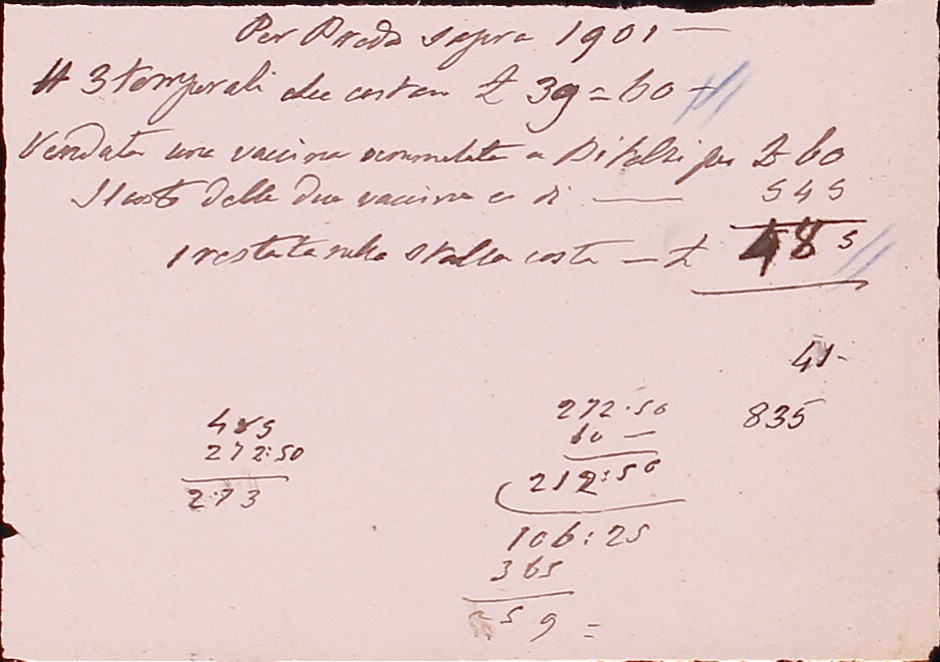 Per Preda sopra 1901 —
# 3 temporali che costan £ 39 = 60 —
Vendata una vaccina ammalata a Di per £ 60
Il costo delle due vaccine e di —— 545
1 restata nella stalla costa — £ 485
41-
835
485
272:50
2:73
272.50
60 —
212:50
106:25
365
59 =